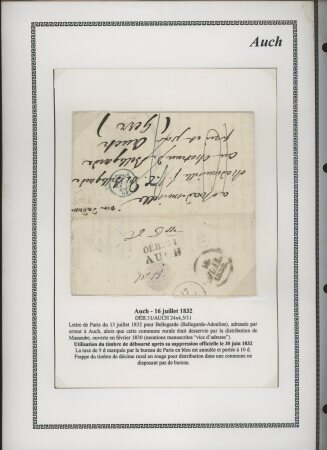 Auch
a Mademoiselle
Mademoiselle
au chateau de Bellegarde
Auch
(Gers)
DEB. 31
AUCH
16
JUIL
1832
Auch - 16 juillet 1832
DÉB.31/AUCH 24x4,5/11
Lettre de Paris du 13 juillet 1832 pour Bellegarde (Bellegarde-Adoulins), adressée par
erreur à Auch, alors que cette commune rurale était desservie par la distribution de
Masseube, ouverte en février 1830 (mentions manuscrites "vice d'adresse").
Utilisation du timbre de déboursé après sa suppression officielle le 30 juin 1832
La taxe de 9 d marquée par le bureau de Paris en bleu est annulée et portée à 10 d
Frappe du timbre de décime rural en rouge pour distribution dans une commune ne
disposant pas de bureau.